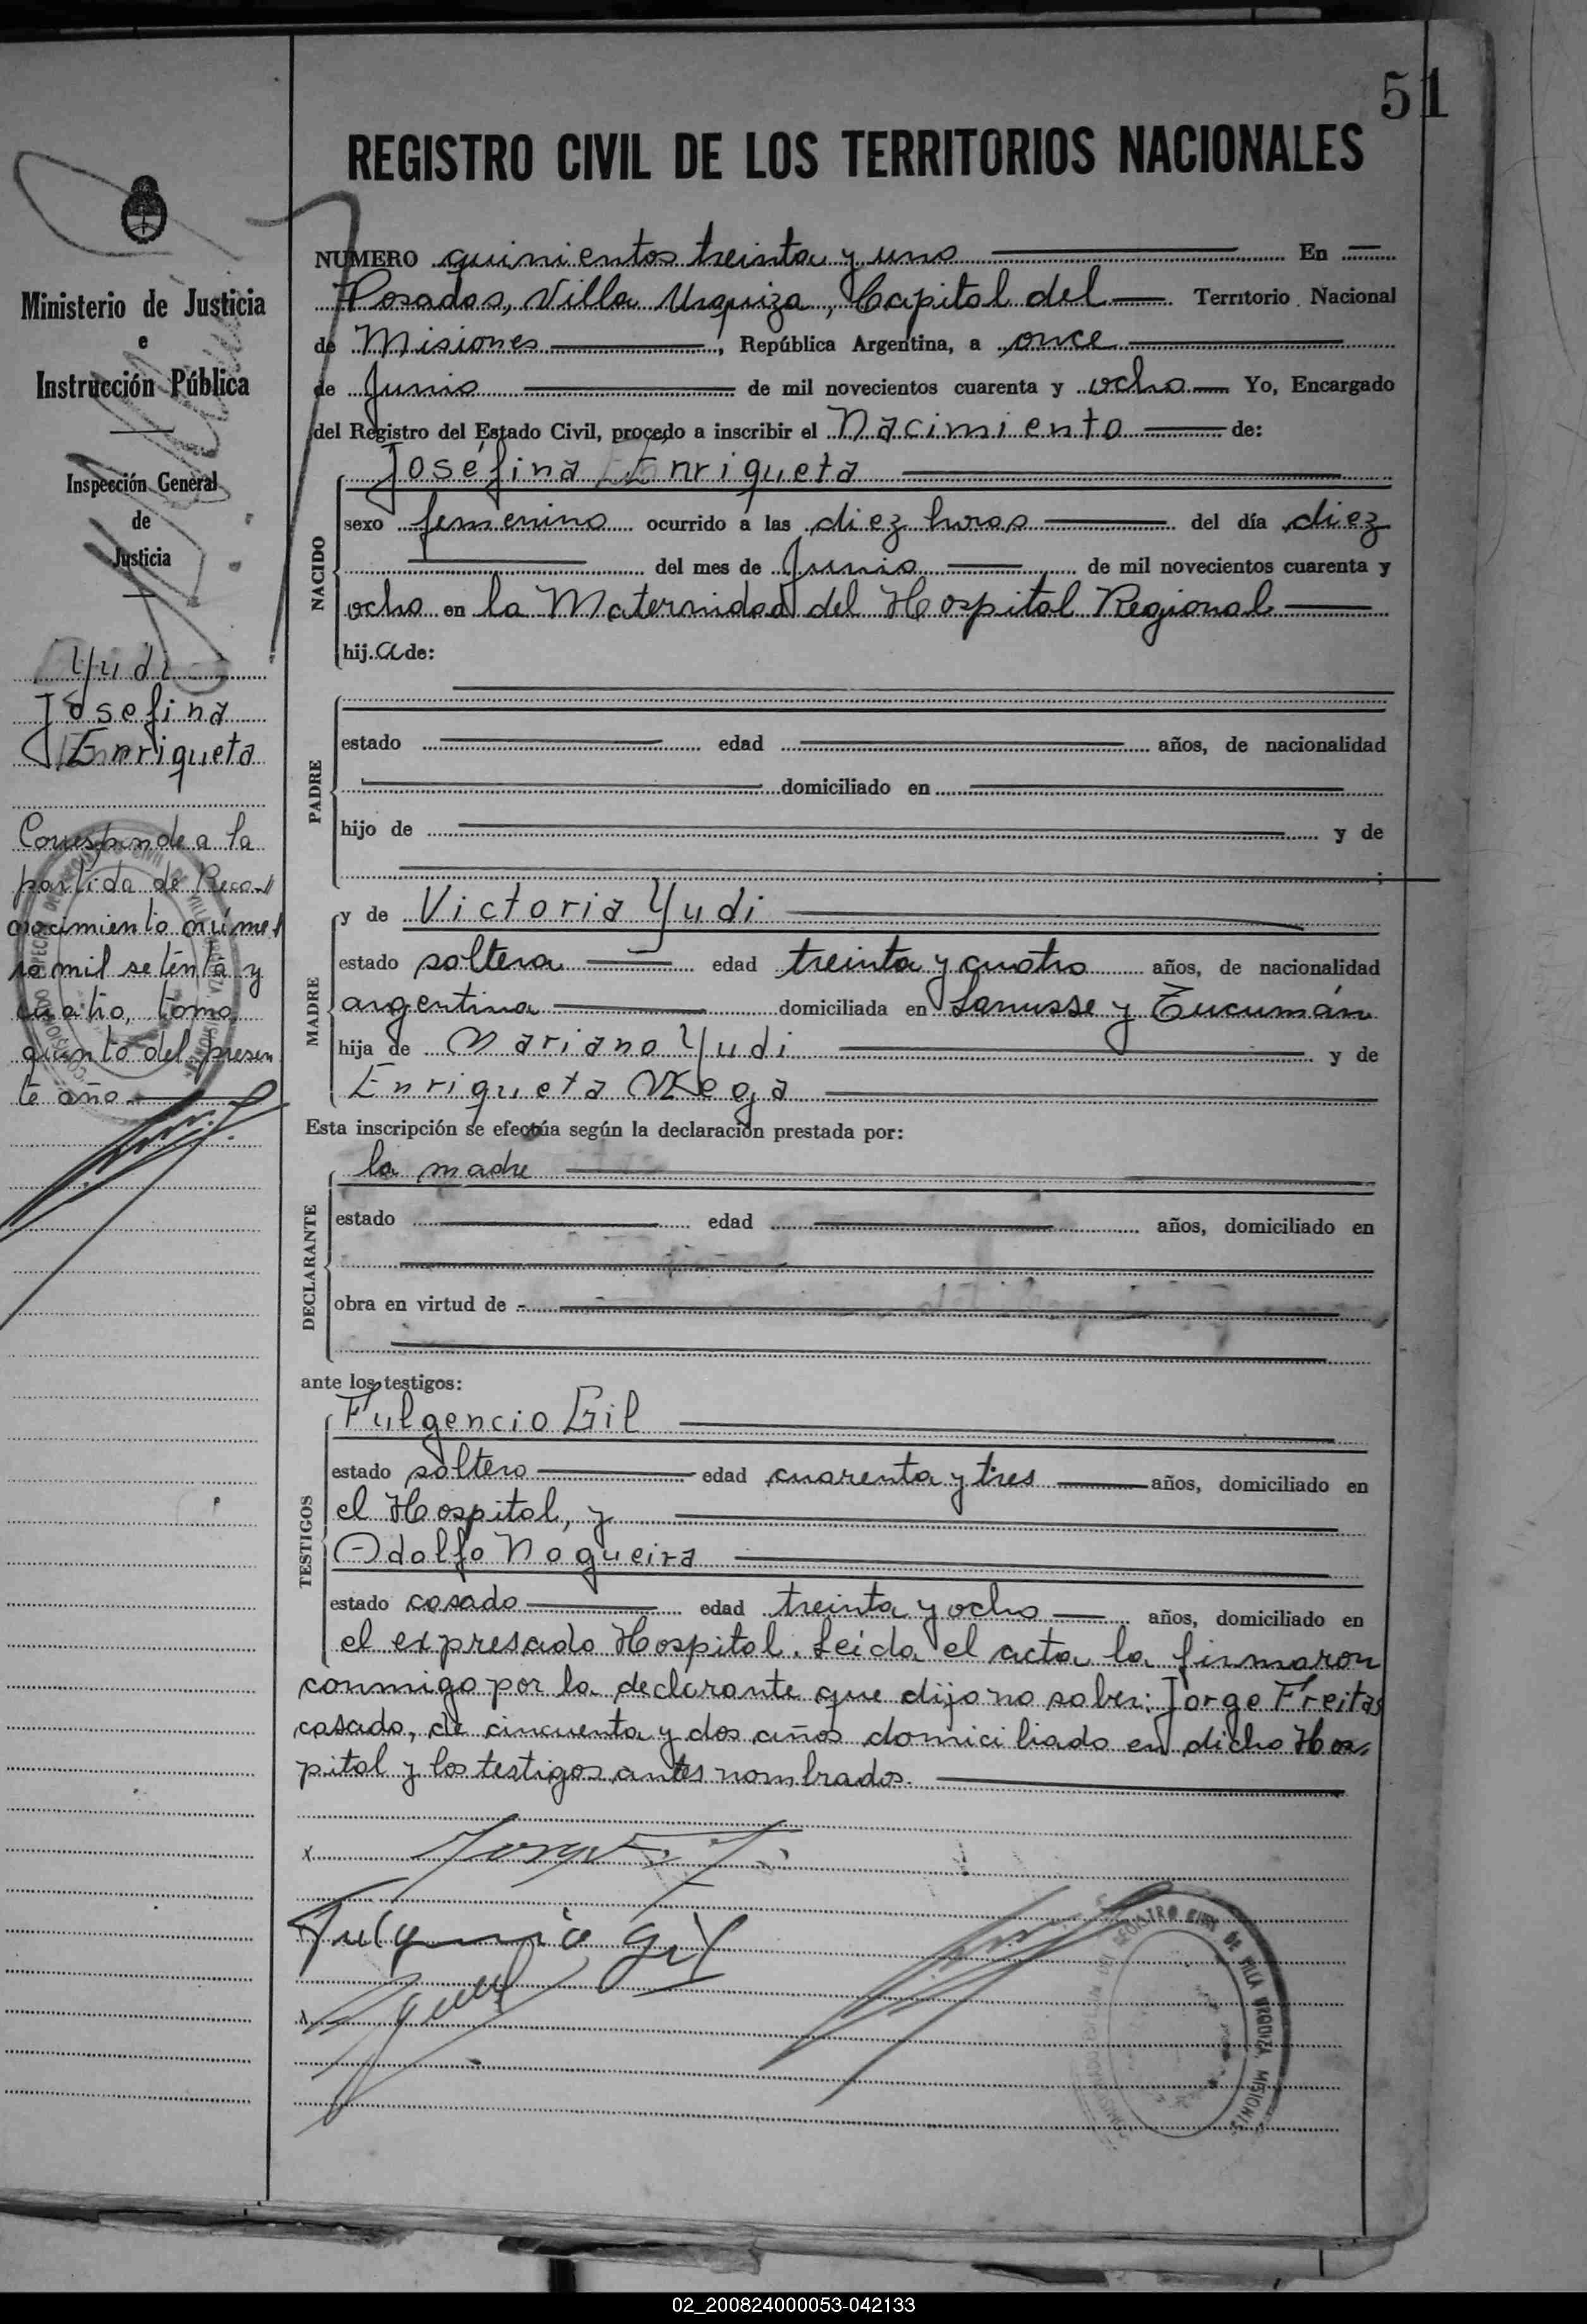 51
REGISTRO CIVIL DE LOS TERRITORIOS NACIONALES
Ministerio de Justicia
e
Instrucción Pública
Inspección General
de
Justicia
Yudi
Josefina
Enriqueta
Corresponde a la
partida de Reco-
nocimiento núme-
ro mil setenta y
cuatro, tomo
quinto del presen
te año
NUMERO quinientos treinta y uno En
Posadas, Villa Urquiza, Capital del Territorio Nacional
de Misiones, República Argentina, a once
de Junio de mil novecientos cuarenta y ocho Yo, Encargado
del Registro del Estado Civil, procedo a inscribir el Nacimiento de:
Joséfina Enriqueta
NACIDO
sexo femenino ocurrido a las diez horas del día diez
del mes de Junio de mil novecientos cuarenta y
ocho en la Maternidad del Hospital Regional
hij.a de:
PADRE
estado edad años, de nacionalidad
domiciliado en
hijo de y de
;
MADRE
y de Victoria Yudi
estado soltera edad treinta y cuatro años, de nacionalidad
argentina domiciliada en Lanusse y Tucumán
hija de Mariano Yudi y de
Enriqueta
Esta inscripción se efectúa según la declaración prestada por:
DECLARANTE
la madre
estado edad años, domiciliado en
obra en virtud de
ante los testigos:
TESTIGOS
Fulgencio Gil
estado soltero edad cuarenta y tres años, domiciliado en
el Hospital, y
Adolfo Nogueira
estado casado edad treinta y ocho años, domiciliado en
el expresado Hospital. Leída el acta la firmaron
conmigo por la declarante que dijo no saber: Jorge Freitas
casado, de cincuenta y dos años domiciliado en dicho Hos-
pital y los testigos antes nombrados.
Fulgencio Gil
REGISTRO CIVIL DE VILLA URQUIZA, MISIONES
02_200824000053-042133